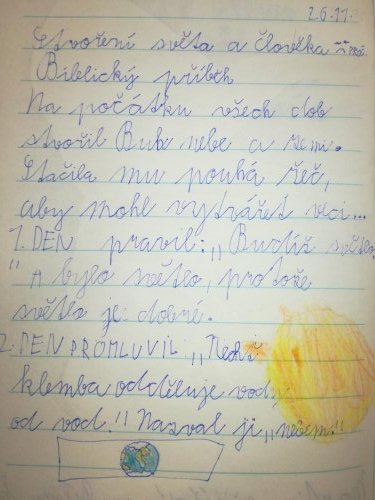 2.6.11.
Stvoření světa a člověka
Biblický příběh
Na počátku všech dob
stvořil Bůh nebe a zemi.
Stačila mu pouhá řeč,
aby mohl vytvářet věci...
1. DEN pravil: „Budiž světlo
" A bylo světlo, protože
světlo je dobré.
2. DEN PROMLUVIL: „Nechť
klemba odděluje vody
od vod." Nazval ji „nebem."